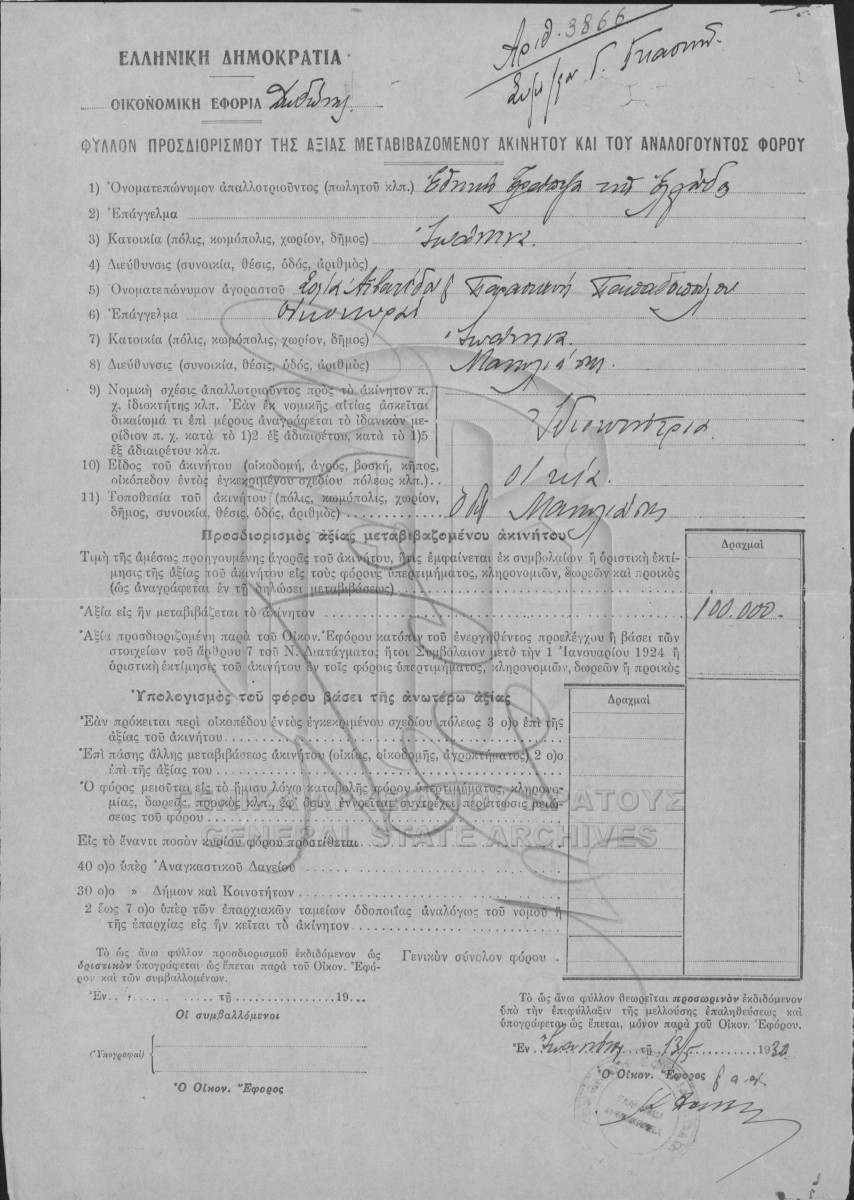 Αριθ. 3866
ΕΛΛΗΝΙΚΗ ΔΗΜΟΚΡΑΤΙΑ
ΟΙΚΟΝΟΜΙΚΗ ΕΦΟΡΙΑ
ΦΥΛΛΟΝ ΠΡΟΣΔΙΟΡΙΣΜΟΥ ΤΗΣ ΑΞΙΑΣ ΜΕΤΑΒΙΒΑΖΟΜΕΝΟΥ ΑΚΙΝΗΤΟΥ ΚΑΙ ΤΟΥ ΑΝΑΛΟΓΟΥΝΤΟΣ ΦΟΡΟΥ
1) Ὀνοματεπώνυμον ἀπαλλοτριοῦντος (πωλητοῦ κλπ.) Ἐθνική Τράπεζα τῆς Ἑλλάδος
2) Ἐπάγγελμα
3) Κατοικία (πόλις, κωμόπολις, χωρίον, δῆμος) Ἰωάννινα
4) Διεύθυνσις (συνοικία, θέσις, ὁδός, ἀριθμὸς)
5) Ὀνοματεπώνυμον ἀγοραστοῦ Παρασκευή Παπαδοπούλου
6) Ἐπάγγελμα οἰκοκυραί
7) Κατοικία (πόλις, κωμόπολις, χωρίον, δῆμος) Ἰωάννινα
8) Διεύθυνσις (συνοικία, θέσις, ὁδός, ἀριθμὸς)
9) Νομικὴ σχέσις ἀπαλλοτριοῦντος πρὸς τὸ ἀκίνητον π.
χ. ἰδιοκτήτης κλπ. Ἐὰν ἐκ νομικῆς αἰτίας ἀσκεῖται
δικαίωμά τι ἐπὶ μέρους ἀναγράφεται τὸ ἰδανικὸν με-
ρίδιον π. χ. κατὰ τὸ 1)2 ἐξ ἀδιαιρέτου, κατὰ τὸ 1)5
ἐξ ἀδιαιρέτου κλπ.
Ἰδιοκτήτρια
10) Εἶδος τοῦ ἀκινήτου (οἰκοδομή, ἀγρός, βοσκή, κῆπος,
οἰκόπεδον ἐντὸς ἐγκεκριμένου σχεδίου πόλεως κλπ.) οἰκία
11) Τοποθεσία τοῦ ἀκινήτου (πόλις, κωμόπολις, χωρίον,
δῆμος, συνοικία, θέσις, ὁδός, ἀριθμὸς) Ὁδός
Προσδιορισμὸς ἀξίας μεταβιβαζομένου ἀκινήτου
Δραχμαὶ
Τιμὴ τῆς ἀμέσως προηγουμένης ἀγορᾶς τοῦ ἀκινήτου, ἥτις ἐμφαίνεται ἐκ συμβολαίων ἢ ὁριστικὴ ἐκτί-
μησις τῆς ἀξίας τοῦ ἀκινήτου εἰς τοὺς φόρους ὑπερτιμήματος, κληρονομιῶν, δωρεῶν καὶ προικὸς
(ὡς ἀναγράφεται ἐν τῇ δηλώσει μεταβιβάσεως)
Ἀξία εἰς ἣν μεταβιβάζεται τὸ ἀκίνητον 100.000.
Ἀξία προσδιοριζομένη παρὰ τοῦ Οἰκον. Ἐφόρου κατόπιν τοῦ ἐνεργηθέντος προελέγχου ἢ βάσει τῶν
στοιχείων τοῦ ἄρθρου 7 τοῦ Ν. Διατάγματος ἤτοι Συμβόλαιον μετὰ τὴν 1 Ἰανουαρίου 1924 ἢ
ὁριστικὴ ἐκτίμησις τοῦ ἀκινήτου ἐν τοῖς φόροις ὑπερτιμήματος, κληρονομιῶν, δωρεῶν ἢ προικὸς
Ὑπολογισμὸς τοῦ φόρου βάσει τῆς ἀνωτέρω ἀξίας
Δραχμαὶ
Ἐὰν πρόκειται περὶ οἰκοπέδου ἐντὸς ἐγκεκριμένου σχεδίου πόλεως 3 ο)ο ἐπὶ τῆς
ἀξίας τοῦ ἀκινήτου
Ἐπὶ πάσης ἄλλης μεταβιβάσεως ἀκινήτου (οἰκίας, οἰκοδομῆς, ἀγροκτήματος) 2 ο)ο
ἐπὶ τῆς ἀξίας του
Ὁ φόρος μειοῦται εἰς τὸ ἥμισυ λόγῳ καταβολῆς φόρου ὑπερτιμήματος, κληρονο-
μίας, δωρεᾶς, προικὸς κλπ., ἐφ' ὅσον ἐννοεῖται συντρέχει περίπτωσις μειώ-
σεως τοῦ φόρου
ΓΕΝΙΚΑ ΑΡΧΕΙΑ ΤΟΥ ΚΡΑΤΟΥΣ
GENERAL STATE ARCHIVES
Εἰς τὸ ἔναντι ποσὸν κυρίου φόρου προστίθεται
40 ο)ο ὑπὲρ Ἀναγκαστικοῦ Δανείου
30 ο)ο » Δήμων καὶ Κοινοτήτων
2 ἕως 7 ο)ο ὑπὲρ τῶν ἐπαρχιακῶν ταμείων ὁδοποιΐας ἀναλόγως τοῦ νομοῦ ἢ
τῆς ἐπαρχίας εἰς ἣν κεῖται τὸ ἀκίνητον
Γενικὸν σύνολον φόρου
Τὸ ὡς ἄνω φύλλον προσδιορισμοῦ ἐκδιδόμενον ὡς
ὁριστικὸν ὑπογράφεται ὡς ἕπεται παρὰ τοῦ Οἰκον. Ἐφό-
ρου καὶ τῶν συμβαλλομένων.
Ἐν τῇ 19
Οἱ συμβαλλόμενοι
(Ὑπογραφαί)
Ὁ Οἰκον. Ἔφορος
Τὸ ὡς ἄνω φύλλον θεωρεῖται προσωρινὸν ἐκδιδόμενον
ὑπὸ τὴν ἐπιφύλαξιν τῆς μελλούσης ἐπαληθεύσεως καὶ
ὑπογράφεται ὡς ἕπεται, μόνον παρὰ τοῦ Οἰκον. Ἐφόρου.
Ἐν Ἰωαννίνοις τῇ 13/5 1932
Ὁ Οἰκον. Ἔφορος